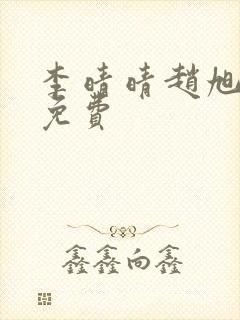 李晴晴趙旭
免費
鑫鑫向鑫